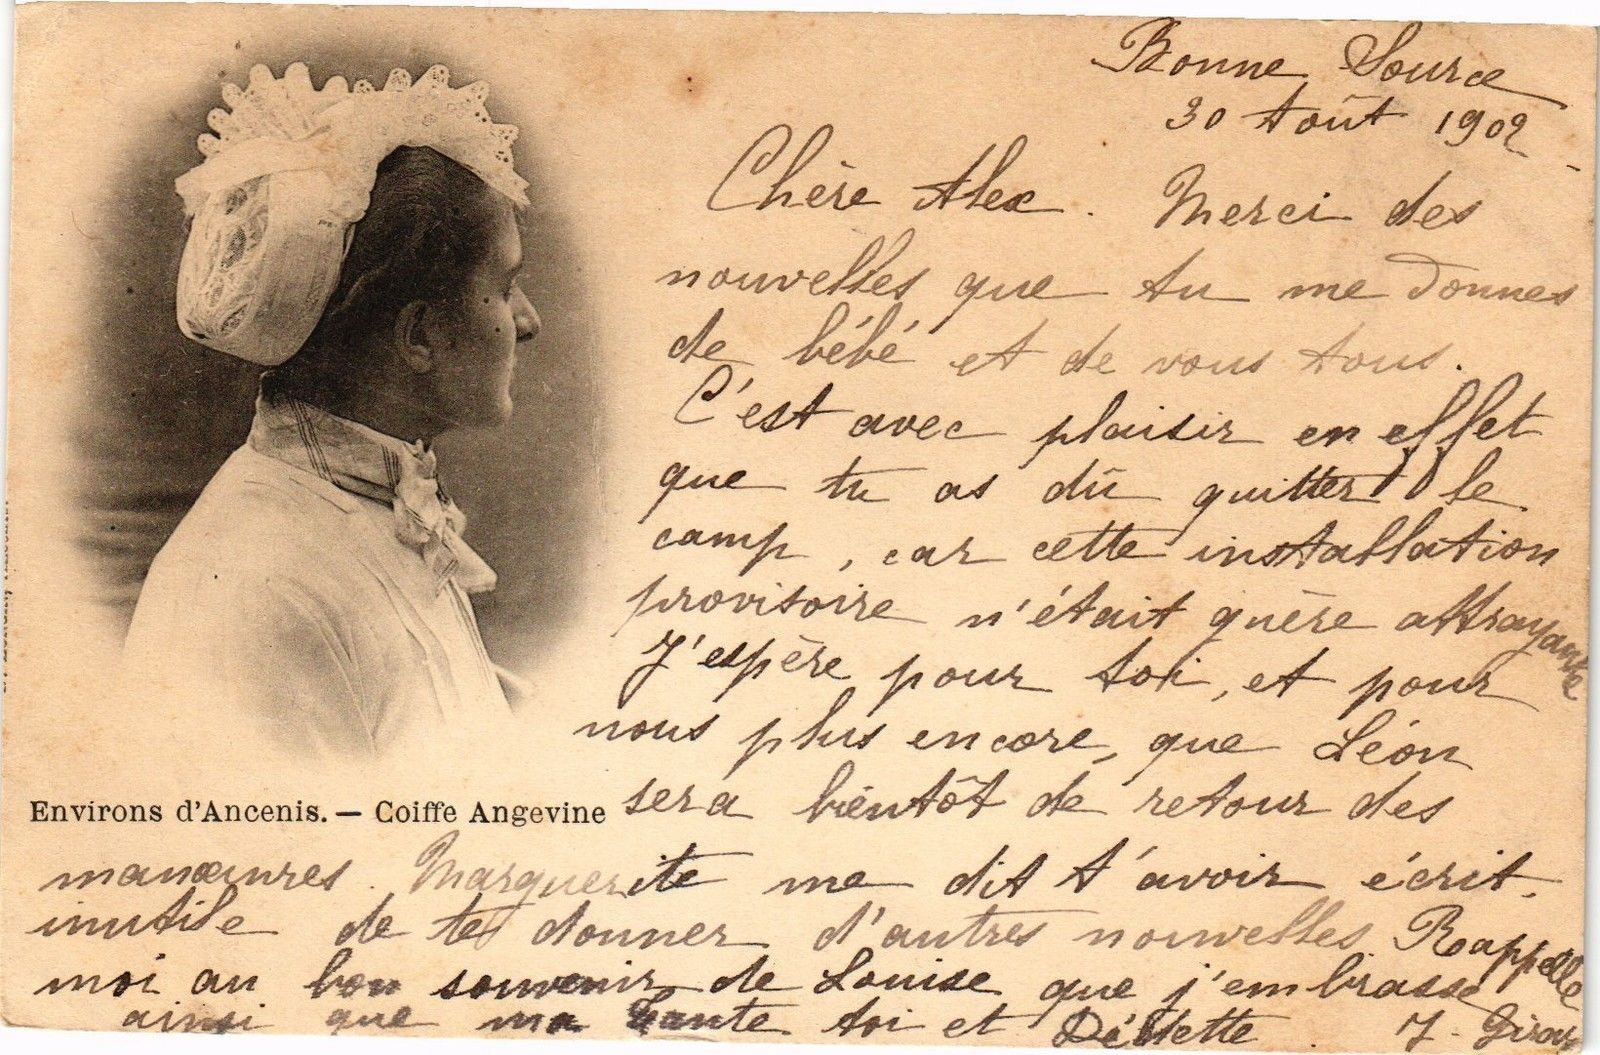 Bonne Source
30 Août 1902
Chère Alex. Merci des
nouvelles que tu me donnes
de bébé et de vous tous.
C'est avec plaisir en effet
que tu as dû quitter le
camp, car cette installation
provisoire n'était guère attrayante
J'espère pour toi, et pour
nous plus encore, que Léon
sera bientôt de retour des
Environs d'Ancenis. — Coiffe Angevine
manœuvres. Marguerite me dit t'avoir écrit.
inutile de te donner d'autres nouvelles. Rappelle
moi au bon souvenir de Louise que j'embrasse
ainsi que ma Tante toi et